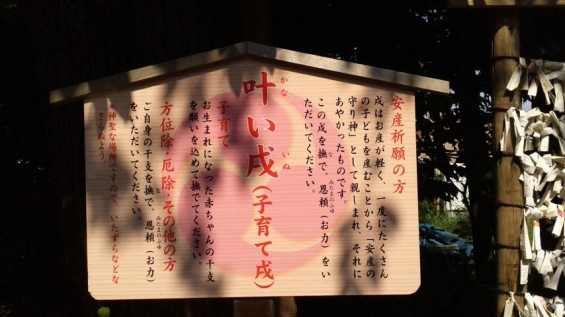 安産祈願の方
戌はお産が軽く、一度にたくさん
の子どもを産むことから「安産の
守り神」として親しまれ、それに
あやかったものです。
この戌を撫で、恩頼（お力）をい
ただいてください。
叶い戌（子育て戌）
子育て
お生まれになった赤ちゃんの干支
を願いを込めて撫でてください
方位除・厄除・その他の方
ご自身の干支を撫で、恩頼（お力）
をいただいてください
神聖な場所ですので、いたずらなどな
さらぬよう